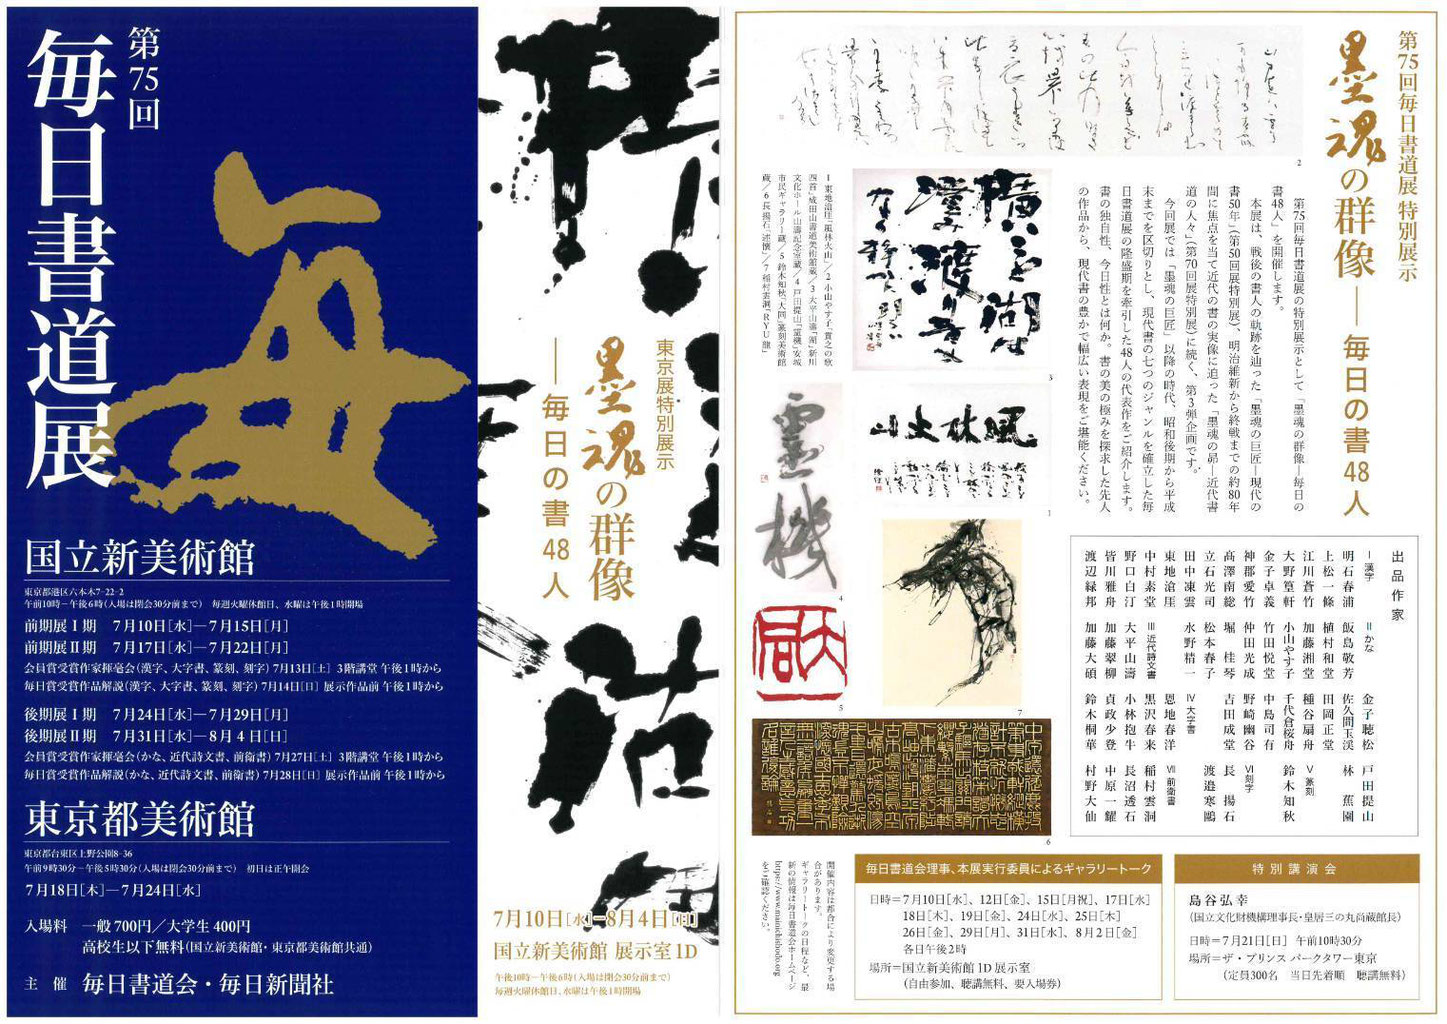 第75回
毎日書道展
毎
国立新美術館
東京都港区六本木7-22-2
午前10時－午後6時（入場は閉会30分前まで）　毎週火曜休館日、水曜は午後1時開場
前期展Ⅰ期　7月10日［水］―7月15日［月］
前期展Ⅱ期　7月17日［水］―7月22日［月］
会員賞受賞作家揮毫会（漢字、大字書、篆刻、刻字）7月13日［土］3階講堂 午後1時から
毎日賞受賞作品解説（漢字、大字書、篆刻、刻字）7月14日［日］展示作品前 午後1時から
後期展Ⅰ期　7月24日［水］―7月29日［月］
後期展Ⅱ期　7月31日［水］―8月4日［日］
会員賞受賞作家揮毫会（かな、近代詩文書、前衛書）7月27日［土］3階講堂 午後1時から
毎日賞受賞作品解説（かな、近代詩文書、前衛書）7月28日［日］展示作品前 午後1時から
東京都美術館
東京都台東区上野公園8-36
午前9時30分－午後5時30分（入場は閉会30分前まで）　初日は正午開会
7月18日［木］―7月24日［水］
入場料　一般 700円／大学生 400円
高校生以下無料（国立新美術館・東京都美術館共通）
主　催　毎日書道会・毎日新聞社
東京展特別展示
墨魂の群像
――毎日の書48人
7月10日［水］―8月4日［日］
国立新美術館 展示室1D
午後10時－午後6時（入場は閉会30分前まで）
毎週火曜休館日、水曜は午後1時開場
第75回毎日書道展 特別展示
墨魂の群像――毎日の書48人
第75回毎日書道展の特別展示として「墨魂の群像―毎日の
書48人」を開催します。
本展は、戦後の書人の軌跡を辿った「墨魂の巨匠―現代の
書50年」（第50回展特別展）、明治維新から終戦までの約80年
間に焦点を当て近代の書の実像に迫った「墨魂の昴―近代書
道の人々」（第70回展特別展）に続く、第3弾企画です。
今回展では「墨魂の巨匠」以降の時代、昭和後期から平成
末までを区切りとし、現代書の七つのジャンルを確立した毎
日書道展の隆盛期を牽引した48人の代表作をご紹介します。
書の独自性、今日性とは何か。書の美の極みを探求した先人
の作品から、現代書の豊かで幅広い表現をご堪能ください。
1 東地滄厓「風林火山」／2 小山やす子「貫之の歌
四首」成田山書道美術館蔵／3 大平山濤「潮」新川
文化ホール山濤記念室蔵／4 戸田提山「霊機」安城
市民ギャラリー蔵／5 鈴木知秋「大同」篆刻美術館
蔵／6 長揚石「述懐」／7 稲村雲洞「RYU 龍」
2
3
風林火山
1
霊機
4
5
7
6
出品作家
Ⅰ漢字
明石春浦
上松一條
江川蒼竹
大野篁軒
金子卓義
神郡愛竹
髙澤南総
立石光司
田中凍雲
東地滄厓
中村素堂
野口白汀
皆川雅舟
渡辺緑邦
Ⅱかな
飯島敬芳
植村和堂
加藤湘堂
小山やす子
竹田悦堂
仲田光成
堀　桂琴
松本春子
水野精一
Ⅲ近代詩文書
大平山濤
加藤翠柳
加藤大碩
金子聴松
佐久間玉渓
田岡正堂
種谷扇舟
千代倉桜舟
中島司有
野崎幽谷
吉田成堂
Ⅳ大字書
恩地春洋
黒沢春来
小林抱牛
貞政少登
鈴木桐華
戸田提山
林　蕉園
Ⅴ篆刻
鈴木知秋
Ⅵ刻字
長　揚石
渡邉寒鷗
Ⅶ前衛書
稲村雲洞
長沼透石
中原一耀
村野大仙
開催内容は都合により変更する場
合があります。
ギャラリートークの日程など、最
新の情報は毎日書道会ホームページ
https://www.mainichishodo.org
をご確認ください。
毎日書道会理事、本展実行委員によるギャラリートーク
日時＝7月10日［水］、12日［金］、15日［月祝］、17日［水］
18日［木］、19日［金］、24日［水］、25日［木］
26日［金］、29日［月］、31日［水］、8月2日［金］
各日午後2時
場所＝国立新美術館 1D 展示室
（自由参加、聴講無料、要入場券）
特別講演会
島谷弘幸
（国立文化財機構理事長・皇居三の丸尚蔵館長）
日時＝7月21日［日］　午前10時30分
場所＝ザ・プリンス パークタワー東京
（定員300名　当日先着順　聴講無料）